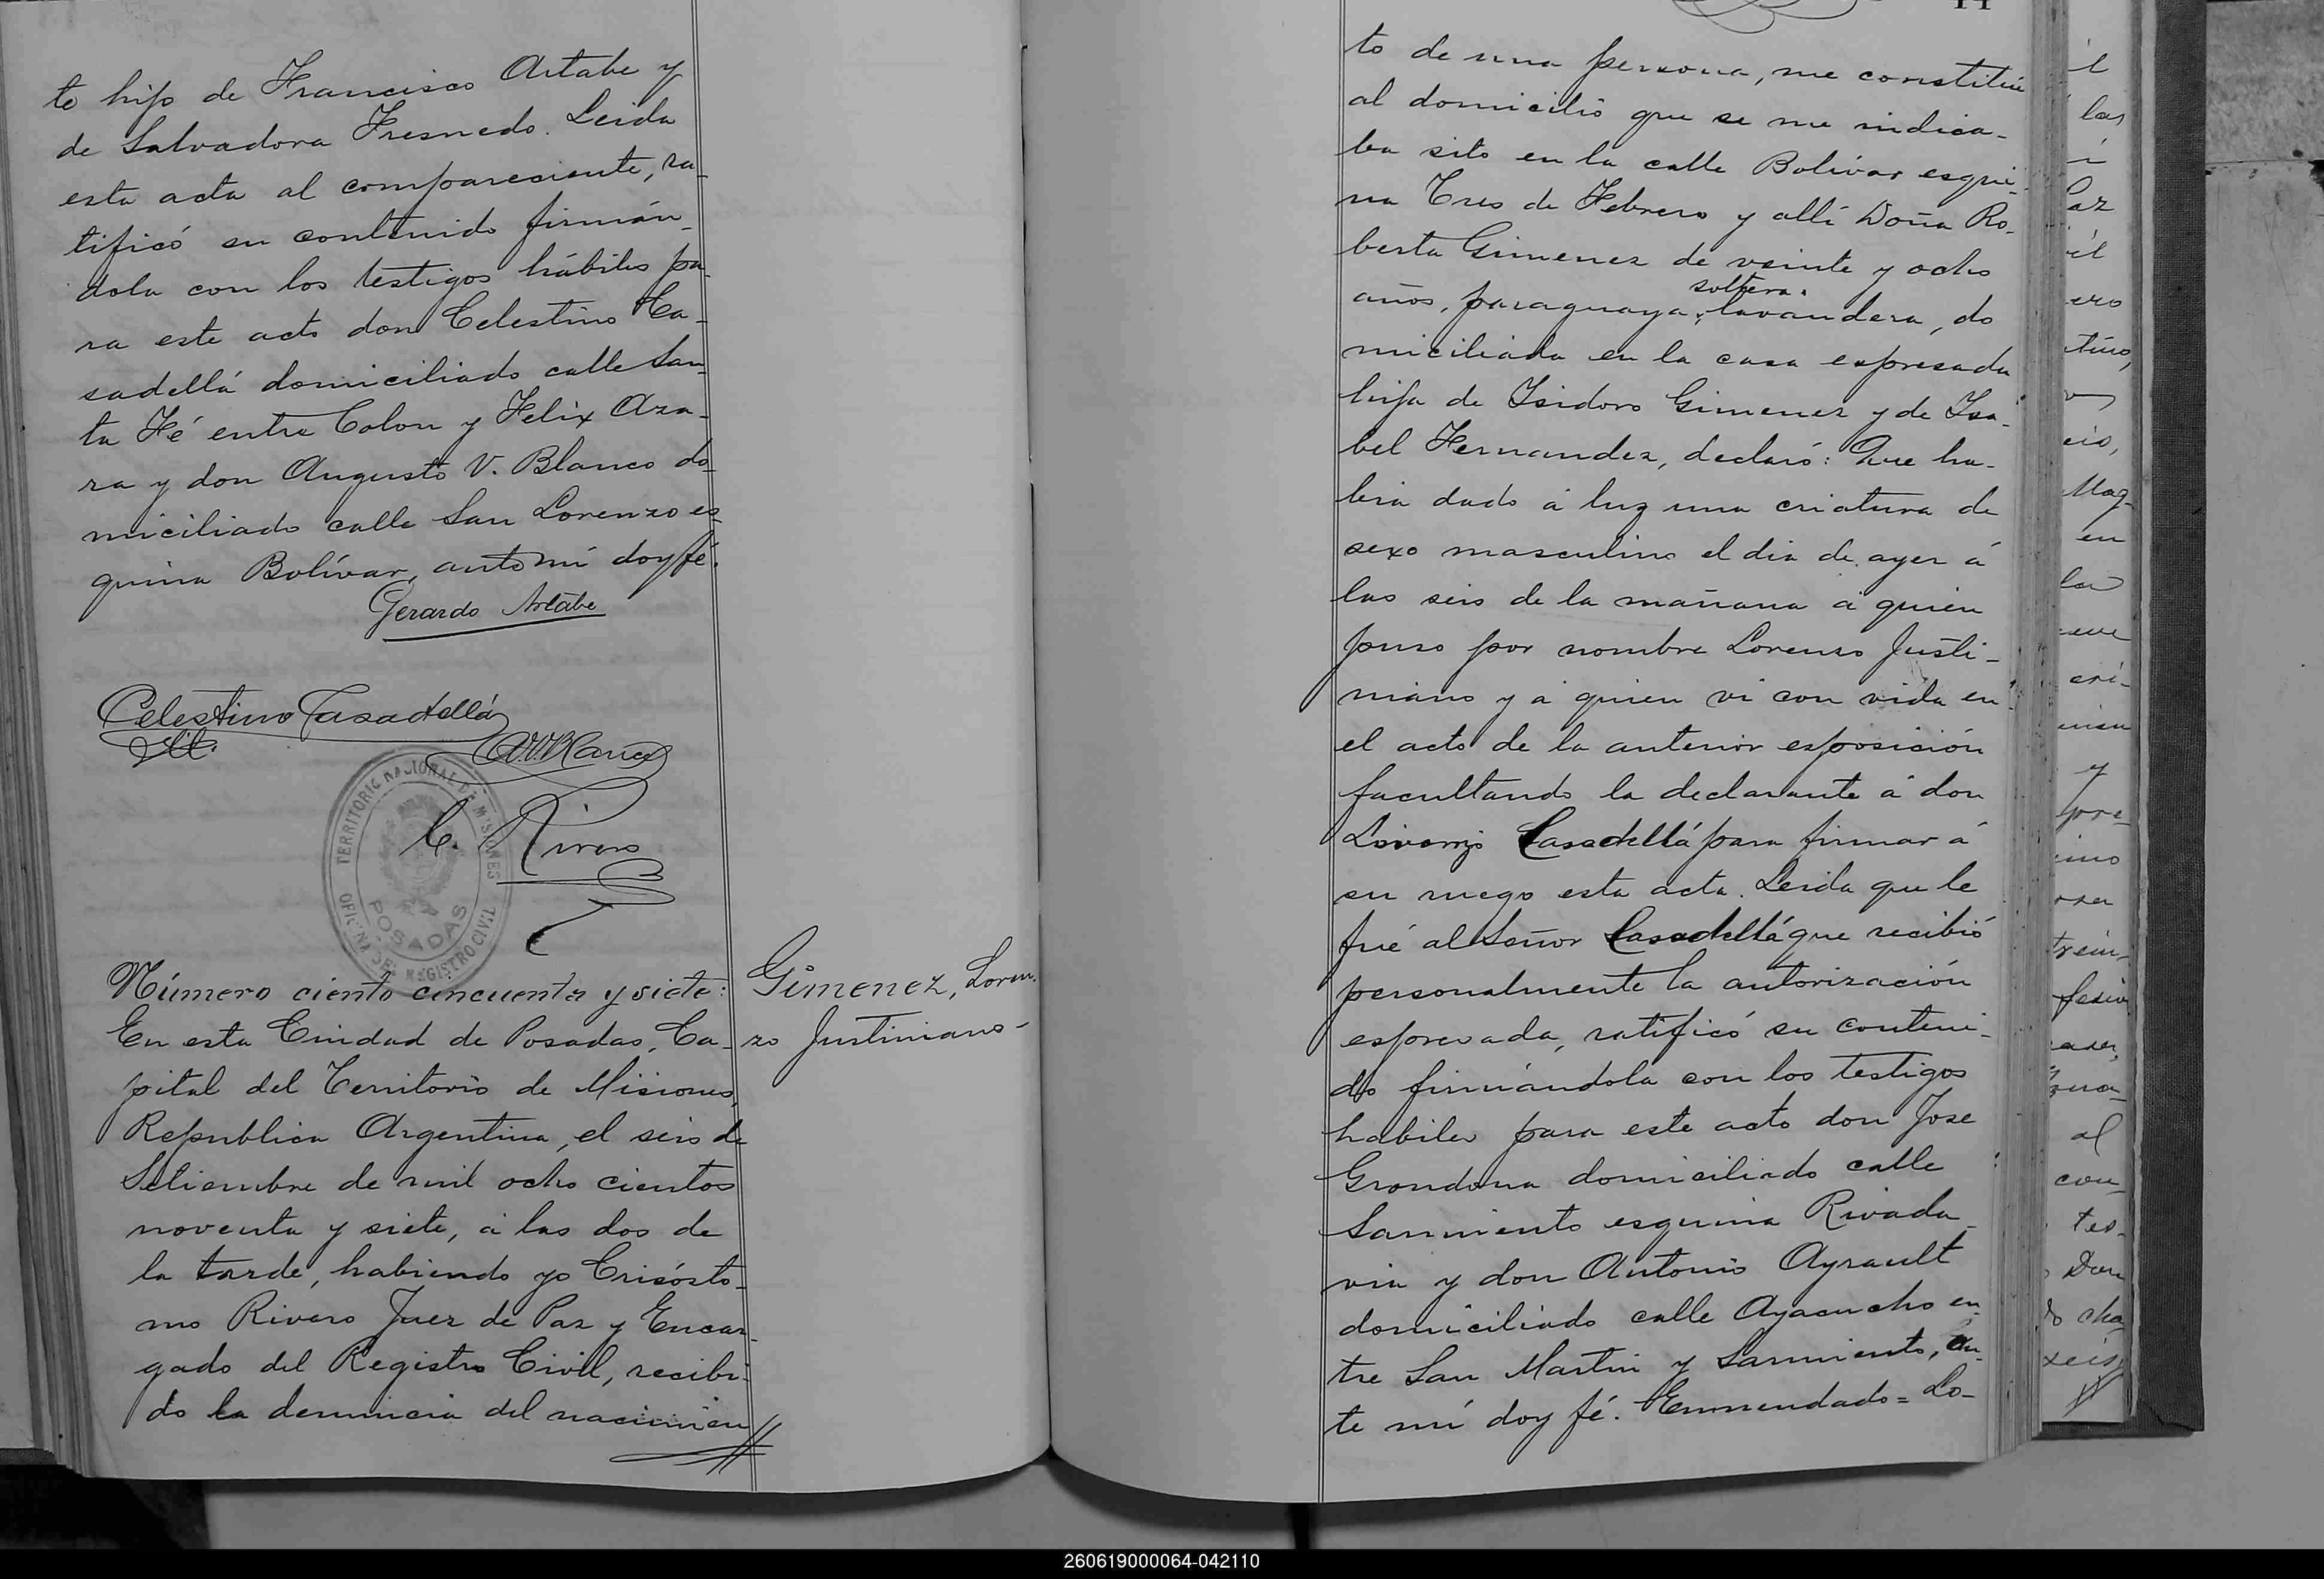 to hijo de Francisco Artabe y
de Salvadora Fresnedo. Leida
esta acta al compareciente, ra-
tificó su contenido firmán-
dola con los testigos hábiles pa-
ra este acto don Celestino Ca-
sadellá domiciliado calle San-
ta Fé entre Colon y Felix Aza-
ra y don Augusto V. Blanco do-
miciliado calle San Lorenzo es-
quina Bolívar, ante mi doy fé.
Gerardo Artabe
Celestino Casadellá
A.V. Blanco
C. Rivero
TERRITORIO NACIONAL DE MISIONES
OFICINA DEL REGISTRO CIVIL
POSADAS
Número ciento cincuenta y siete:
En esta Ciudad de Posadas, Ca-
pital del Territorio de Misiones,
Republica Argentina, el seis de
Setiembre de mil ocho cientos
noventa y siete, á las dos de
la tarde, habiendo yo Crisósto-
mo Rivero Juez de Paz y Encar-
gado del Registro Civil, recibi-
do la denuncia del nacimien
Gimenez, Loren-
zo Justiniano-
to de una persona, me constitui
al domicilio que se me indica-
ba sito en la calle Bolívar esqui-
na Tres de Febrero y allí Doña Ro-
berta Gimenez de veinte y ocho
soltera.
años, paraguaya, lavandera, do
miciliada en la casa espresada
hija de Isidoro Gimenez y de Isa-
bel Fernandez, declaró: Que ha-
bia dado á luz una criatura de
sexo masculino el dia de ayer á
las seis de la mañana á quien
puso por nombre Lorenzo Justi-
niano y á quien vi con vida en
el acto de la anterior esposición
facultando la declarante á don
Casadellá para firmar á
su ruego esta acta. Leida que le
fué al Señor Casadellá que recibió
personalmente la autorización
espresada, ratificó su conteni-
do firmándola con los testigos
habiles para este acto don Jose
Grondona domiciliado calle
Sarmiento esquina Rivada-
via y don Antonio Ayrault
domiciliado calle Ayacucho en-
tre San Martin y Sarmiento, an-
te mí doy fé. Enmendado = Lo-
las
Paz
Mag-
en
la
y
al
con-
tes-
260619000064-042110